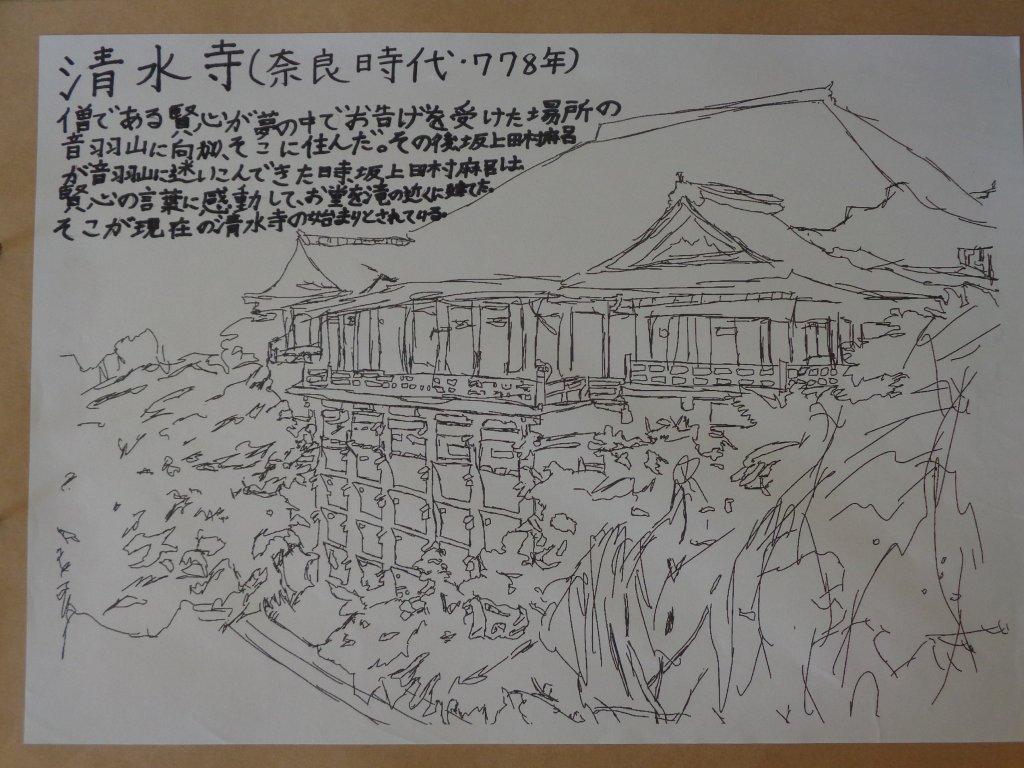 清水寺(奈良時代・778年)
僧である賢心が夢の中でお告げを受けた場所の
音羽山に向い、そこに住んだ。その後坂上田村麻呂
が音羽山に迷いこんできた時坂上田村麻呂は
賢心の言葉に感動して、お堂を滝の近くに建てた。
そこが現在の清水寺の始まりとされている。